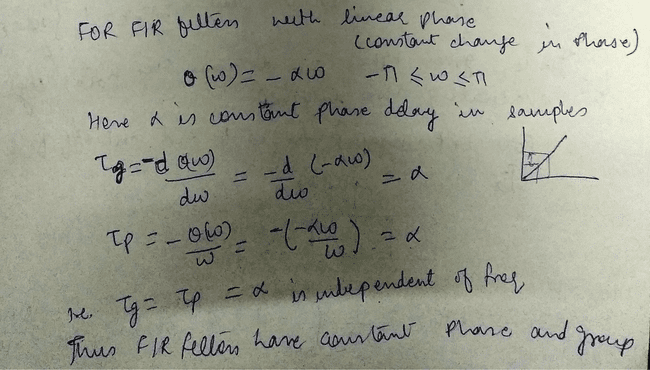 FOR FIR filters with linear phase
(constant change in phase)
θ(ω) = - αω   -π ≤ ω ≤ π
Here α is constant phase delay in samples
τg = -d θ(ω)/dω = -d/dω (-αω) = α
τp = -θ(ω)/ω = -(-αω/ω) = α
ie. τg = τp = α is independent of freq
Thus FIR filters have constant phase and group